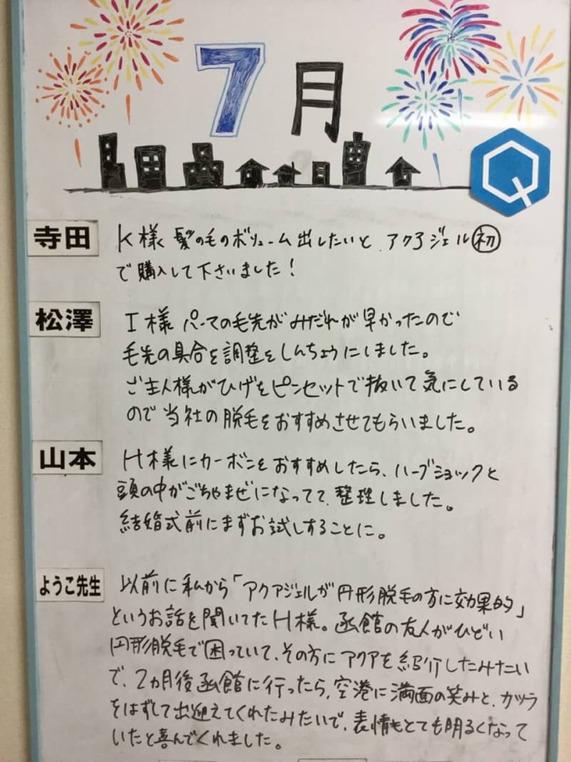 7月
寺田
K様 髪の毛のボリューム出したいと、アクアジェル初
で購入して下さいました！
松澤
I様 パーマの毛先がみだれが早かったので
毛先の具合を調整をしんちょうにしました。
ご主人様がひげをピンセットで抜いて気にしている
ので当社の脱毛をおすすめさせてもらいました。
山本
H様にカーボンをおすすめしたら、ハーブショックと
頭の中がごちゃまぜになってて、整理しました。
結婚式前にまずお試しすることに。
ようこ先生
以前に私から「アクアジェルが円形脱毛の方に効果的」
というお話を聞いてたH様。函館の友人がひどい
円形脱毛で困っていて、その方にアクアを紹介したみたい
で、2ヵ月後函館に行ったら、空港に満面の笑みと、カツラ
をはずして出迎えてくれたみたいで、表情もとても明るくなって
いたと喜んでくれました。